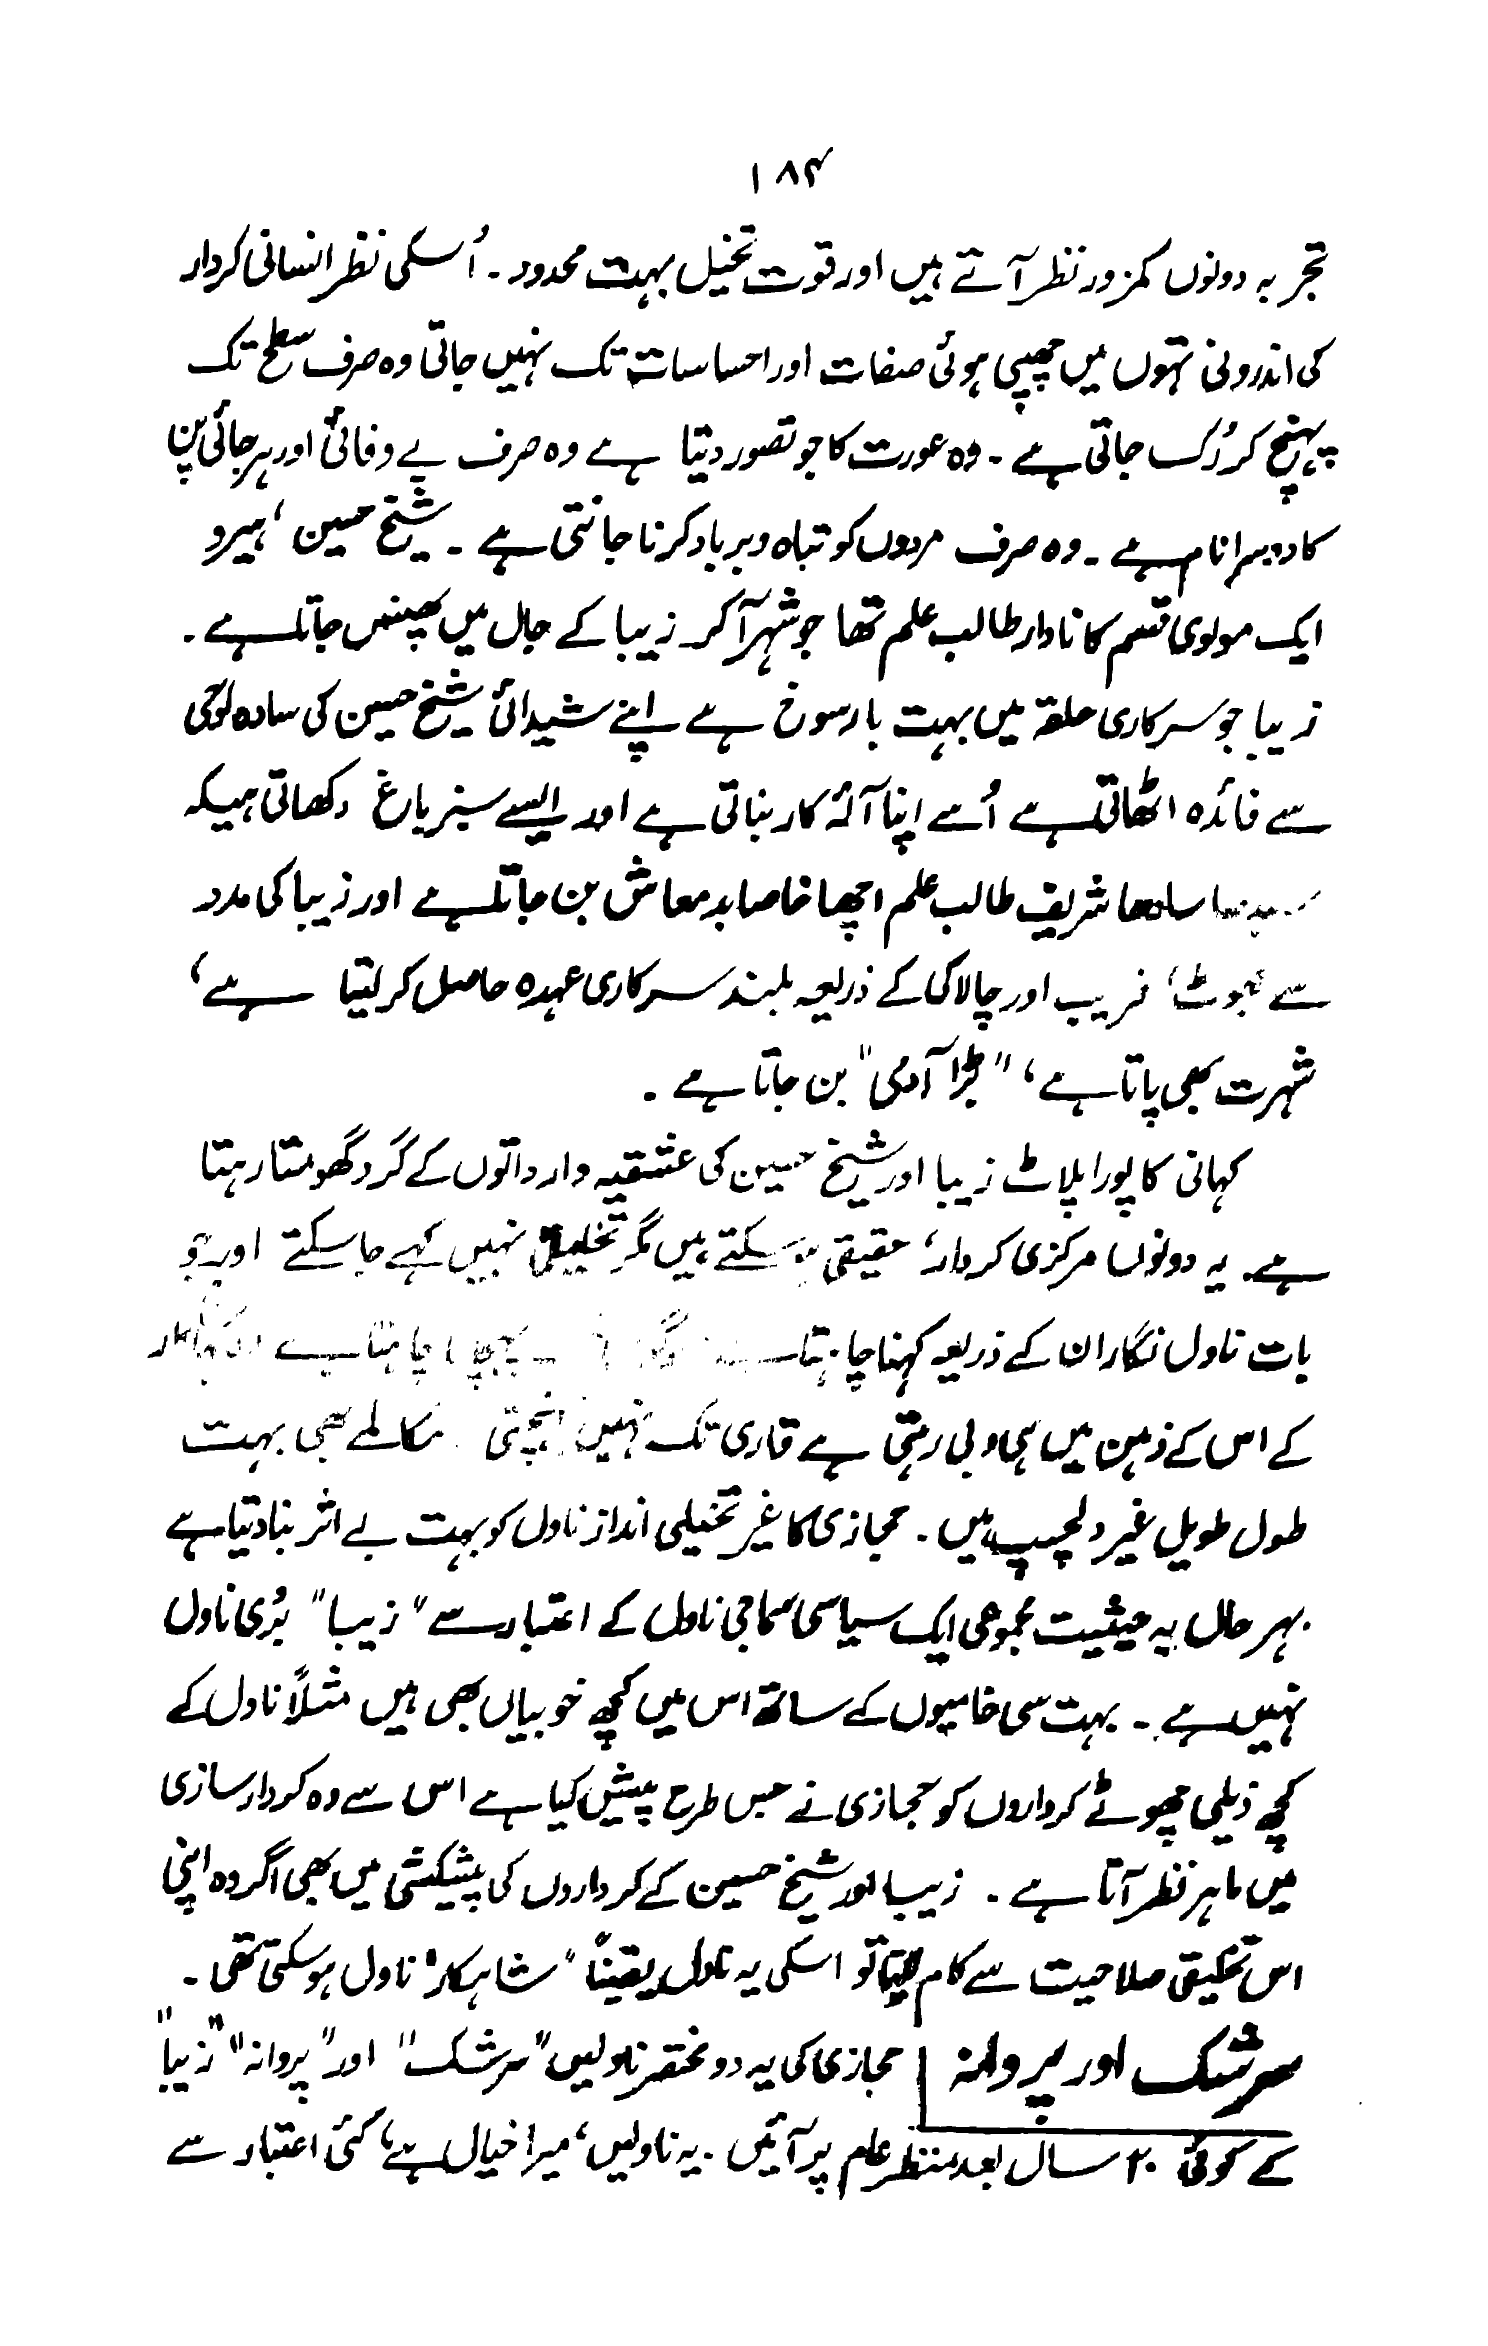 ۱۸۴
تجربہ دونوں کمزور نظر آتے ہیں اور قوت تخیل بہت محدود ۔ اُسکی نظر انسانی کردار
کی اندرونی تہوں میں چھپی ہوئی صفات اور احساسات تک نہیں جاتی وہ صرف سطح تک
پہنچ کر رُک جاتی ہے ۔ وہ عورت کا جو تصور دیتا ہے وہ صرف بے وفائی اور ہرجائی پن
کا دوسرا نام ہے ۔ وہ صرف مردوں کو تباہ و برباد کرنا جانتی ہے ۔ شیخ حسین ، ہیرو
ایک مولوی قسم کا نادار طالب علم تھا جو شہر آ کر زیبا کے جال میں پھنس جاتا ہے ۔
زیبا جو سرکاری حلقہ میں بہت بارسوخ ہے اپنے شیدائی شیخ حسین کی سادہ لوحی
سے فائدہ اٹھاتی ہے اُسے اپنا آلۂ کار بناتی ہے اور ایسے سبز باغ دکھاتی ہیکہ
سیدھا سادھا شریف طالب علم اچھا خاصا بدمعاش بن جاتا ہے اور زیبا کی مدد
سے جھوٹ ، فریب اور چالاکی کے ذریعہ بلند سرکاری عہدہ حاصل کر لیتا ہے ،
شہرت بھی پاتا ہے ، "بڑا آدمی" بن جاتا ہے ۔
کہانی کا پورا پلاٹ زیبا اور شیخ حسین کی عشقیہ وارداتوں کے گرد گھومتا رہتا
ہے ۔ یہ دونوں مرکزی کردار ، حقیقی ہو سکتے ہیں مگر تخلیق نہیں کہے جا سکتے اور جو
بات ناول نگار ان کے ذریعہ کہنا چاہتا ہے چاہتا ہے
کے اس کے ذہن میں ہی دبی رہتی ہے قاری تک نہیں پہنچتی ۔ مکالمے بھی بہت
طول طویل غیر دلچسپ ہیں ۔ حجازی کا غیر تخیلی انداز ناول کو بہت بے اثر بنا دیتا ہے
بہر حال بہ حیثیت مجموعی ایک سیاسی سماجی ناول کے اعتبار سے "زیبا" بُری ناول
نہیں ہے ۔ بہت سی خامیوں کے ساتھ اس میں کچھ خوبیاں بھی ہیں مثلاً ناول کے
کچھ ذیلی چھوٹے کرداروں کو حجازی نے جس طرح پیش کیا ہے اس سے وہ کردار سازی
میں ماہر نظر آتا ہے ۔ زیبا اور شیخ حسین کے کرداروں کی پیشکشی میں بھی اگر وہ اپنی
اس تخلیقی صلاحیت سے کام لیتا تو اسکی یہ ناول یقیناً "شاہکار" ناول ہو سکتی تھی ۔
سرشک اور پروانہ حجازی کی یہ دو مختصر ناولیں "سرشک" اور "پروانہ" "زیبا"
کے کوئی ۲۰ سال بعد منظر عام پر آئیں ۔ یہ ناولیں ، میرا خیال ہے ، کئی اعتبار سے